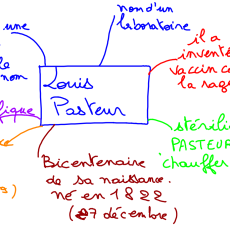 une
nom d'un
laboratoire
il a
inventé
vaccin co
la rag
le
nom
Louis
Pasteur
lique
stérili
PASTEUR
chauffer
Bicentenaire
de sa naissance.
né en 1822
(27 décembre)